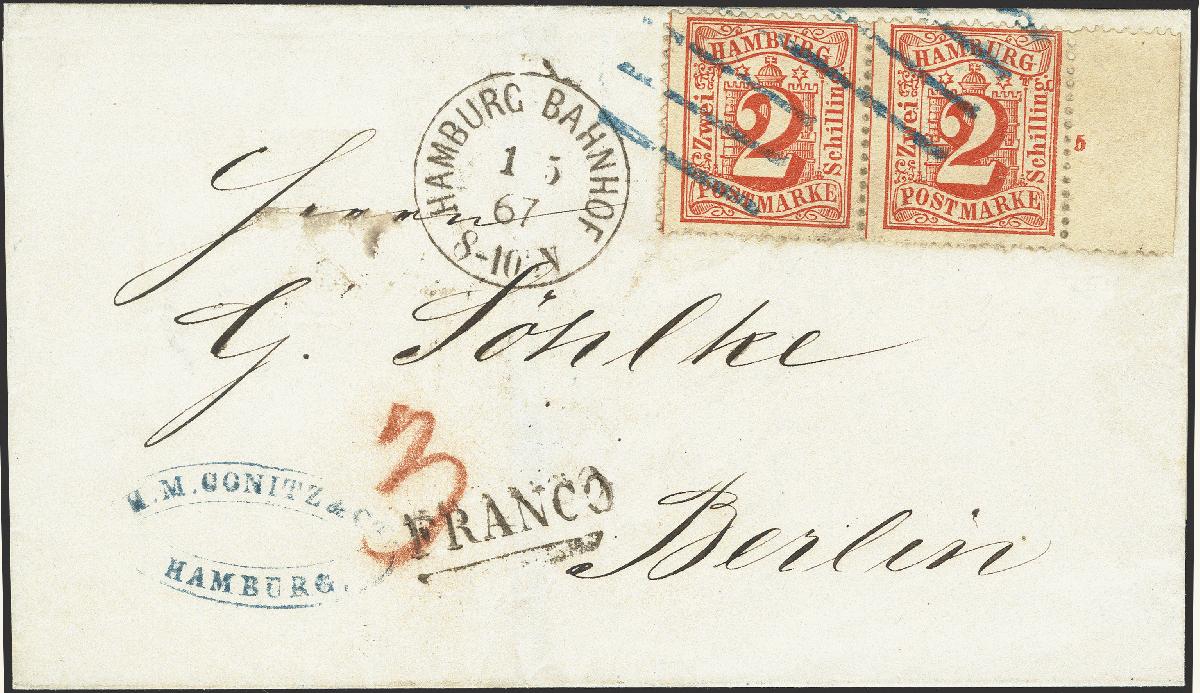 HAMBURG
Zwei
2
Schilling
POSTMARKE
HAMBURG
Zwei
2
Schilling
POSTMARKE
5
HAMBURG BAHNHOF
1 5
67
8-10 N
Herrn
G. Söhlke
3
FRANCO
M. GONITZ & Co
HAMBURG.
Berlin